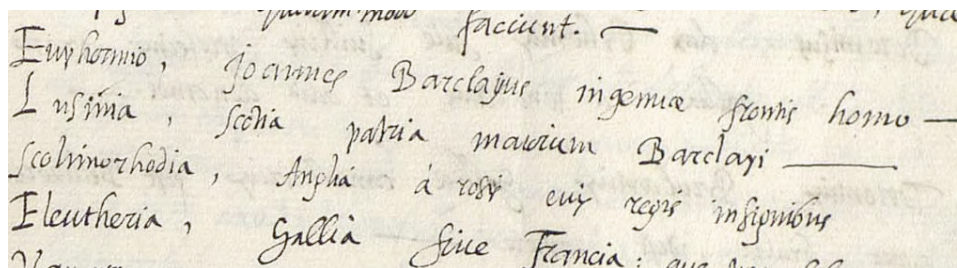 faciunt.
Euphormio, Joannes Barclajus ingenuæ frontis homo
Lusinia, Scotia patria maiorum Barclayi
Scolimorhodia, Anglia à rosis eius regis insignibus
Eleutheria, Gallia sive Francia: